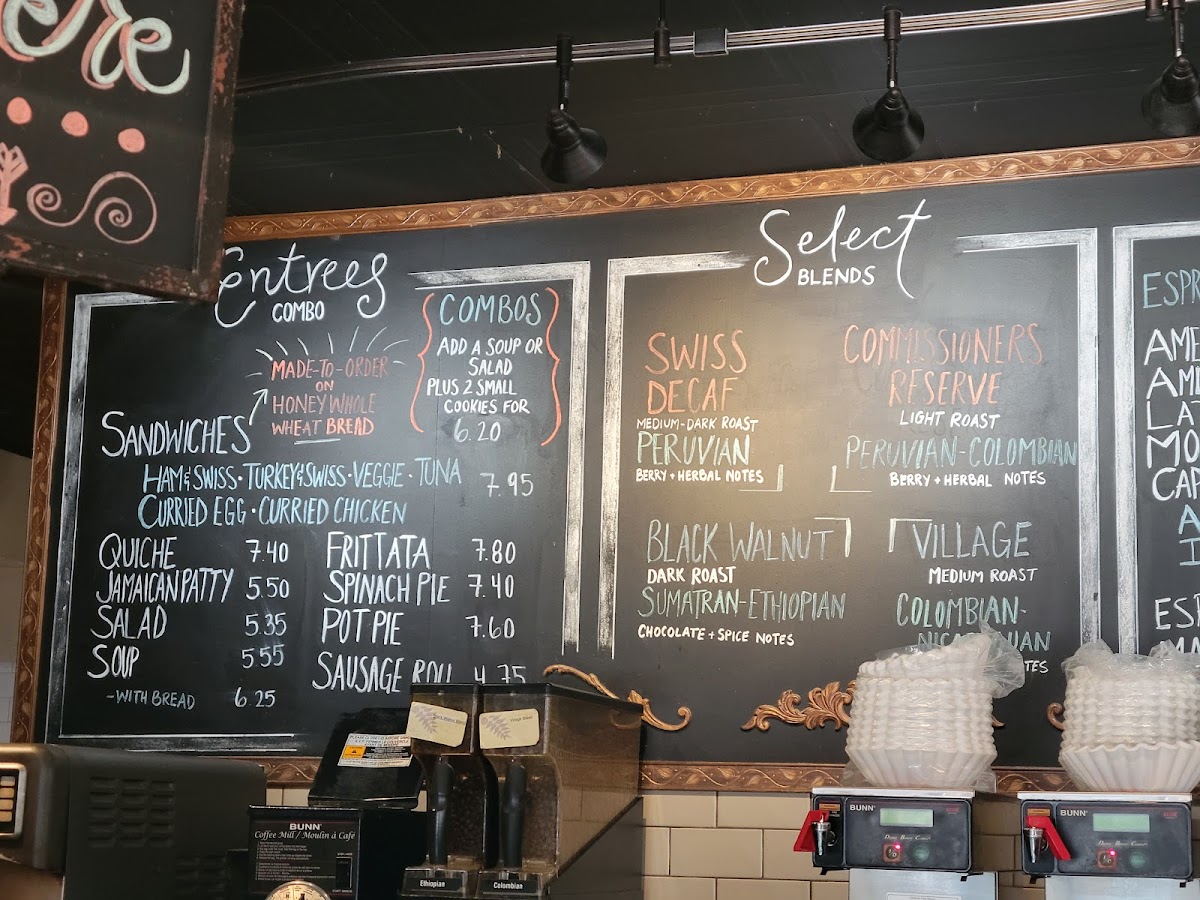 Entrees
COMBO
MADE-TO-ORDER
ON
HONEY WHOLE
WHEAT BREAD
COMBOS
ADD A SOUP OR
SALAD
PLUS 2 SMALL
COOKIES FOR
6.20
SANDWICHES
HAM & SWISS · TURKEY & SWISS · VEGGIE · TUNA 7.95
CURRIED EGG · CURRIED CHICKEN
QUICHE 7.40
JAMAICAN PATTY 5.50
SALAD 5.35
SOUP 5.55
-WITH BREAD 6.25
FRITTATA 7.80
SPINACH PIE 7.40
POT PIE 7.60
SAUSAGE ROLL 4.75
Select
BLENDS
SWISS
DECAF
MEDIUM-DARK ROAST
PERUVIAN
BERRY + HERBAL NOTES
COMMISSIONERS
RESERVE
LIGHT ROAST
PERUVIAN-COLOMBIAN
BERRY + HERBAL NOTES
BLACK WALNUT
DARK ROAST
SUMATRAN-ETHIOPIAN
CHOCOLATE + SPICE NOTES
VILLAGE
MEDIUM ROAST
COLOMBIAN-
BUNN
Coffee Mill / Moulin à Café
Ethiopian
Colombian
BUNN
BUNN